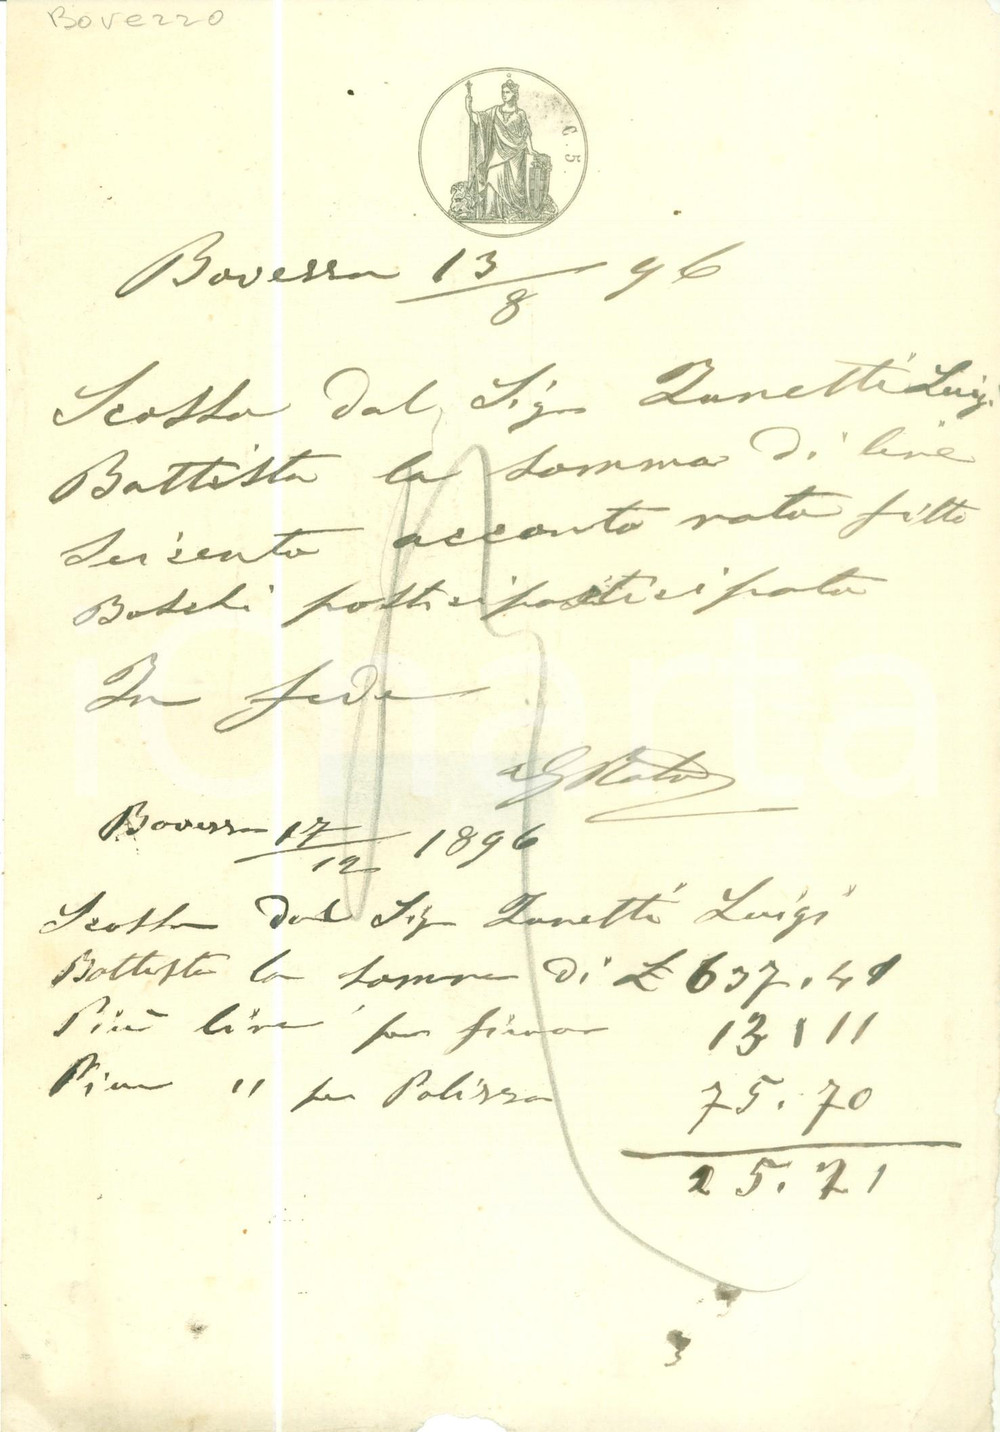 Bovezzo
C. 5
Bovezzo 13/8 96
Scosso dal Sig Zanetti Luigi
Battista la somma di lire
seicento acconto rata fitto
Boschi posticipaticipata
In fede
Bovezzo 17/12 1896
Scosso dal Sig Zanetti Luigi
Battista la somma di £ 637.41
Più lire per 13 11
Più " per Polizza 75.70
25.71
3